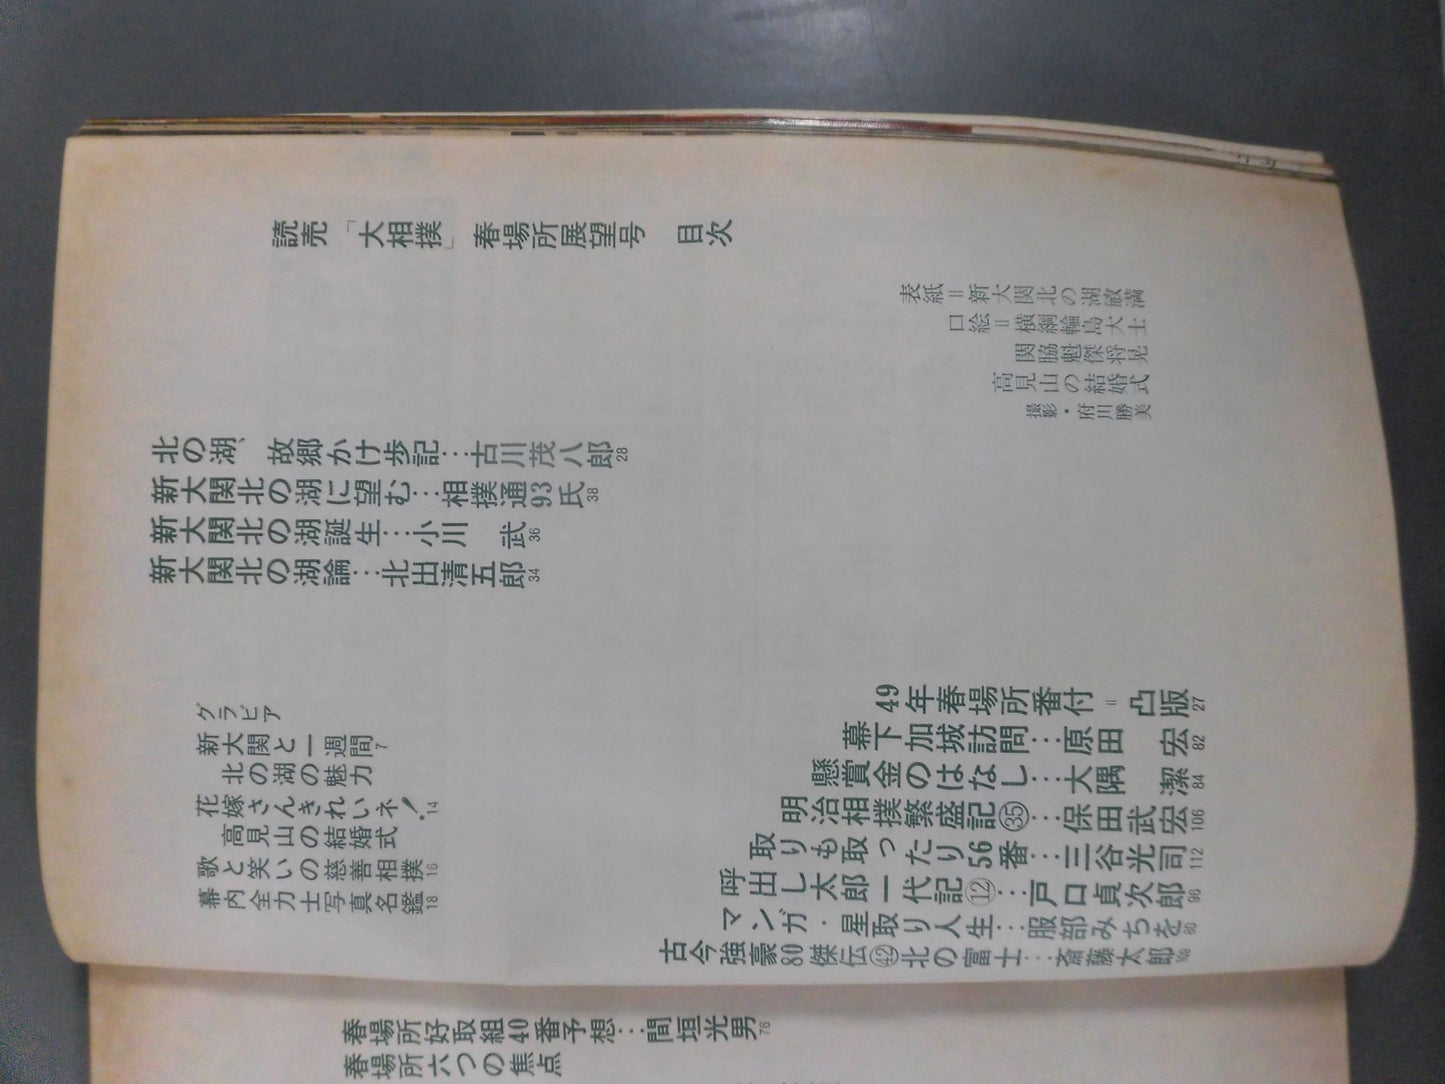 読売「大相撲」春場所展望号 目次
表紙＝新大関北の湖敏満
口絵＝横綱輪島大士
関脇魁傑将晃
高見山の結婚式
撮影・府川勝美
北の湖、故郷かけ歩記…古川茂八郎 28
新大関北の湖に望む…相撲通93氏 38
新大関北の湖誕生…小川 武 36
新大関北の湖論…北出清五郎 34
49年春場所番付＝凸版 27
幕下加城訪問…原田 宏 82
懸賞金のはなし…大隅 潔 84
明治相撲繁盛記㉟…保田武宏 106
取りも取ったり56番…三谷光司 112
呼出し太郎一代記⑫…戸口貞次郎 96
マンガ・星取り人生…服部みちを
古今強豪80傑伝㊷北の富士…斎藤太郎
グラビア
新大関と一週間 7
北の湖の魅力
花嫁さんきれいネ！ 14
高見山の結婚式
歌と笑いの慈善相撲 16
幕内全力士写真名鑑 18
春場所好取組40番予想…間垣光男 76
春場所六つの焦点